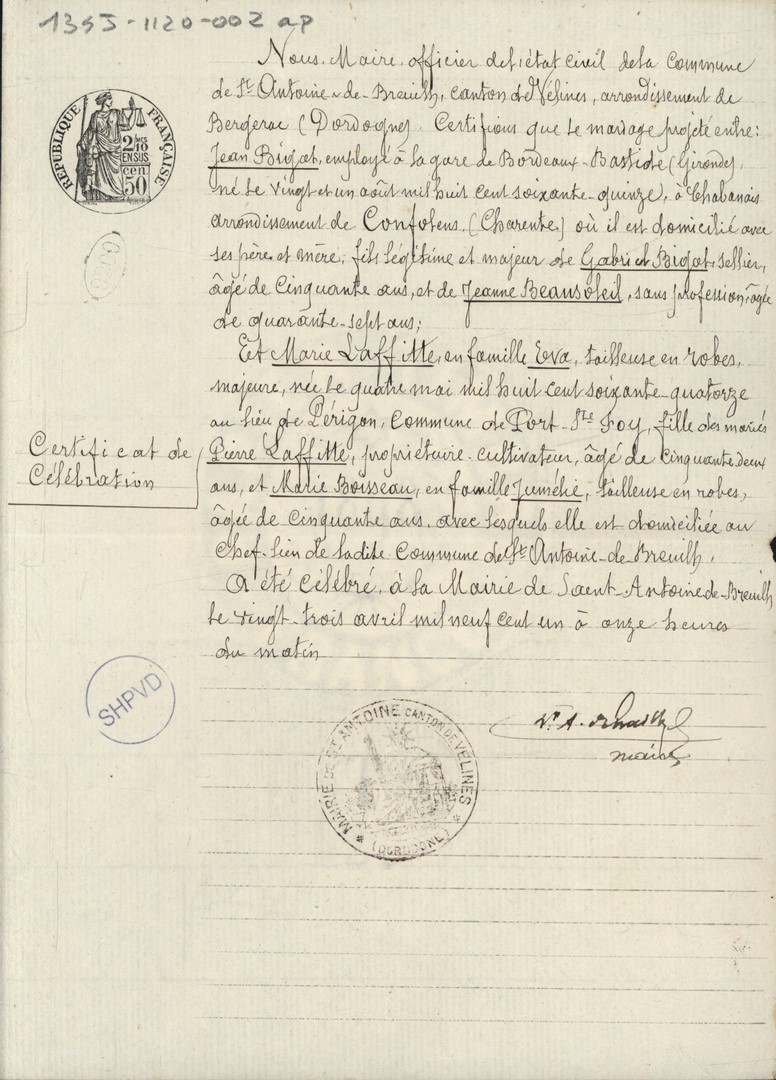 1395-1120-002 ap
RÉPUBLIQUE FRANÇAISE
2/10es
EN SUS
50 cen
Nous, Maire, officier de l'état civil de la Commune
de St Antoine-de-Breuilh, canton de Vélines, arrondissement de
Bergerac (Dordogne). Certifions que le mariage projeté entre:
Jean Bigot, employé à la gare de Bordeaux-Bastide (Gironde),
né le vingt et un août mil huit cent soixante-quinze, à Chabanais
arrondissement de Confolens (Charente) où il est domicilié avec
ses père et mère, fils légitime et majeur de Gabriel Bigot, sellier,
âgé de Cinquante ans, et de Jeanne Beausoleil, sans profession, âgée
de quarante-sept ans;
Et Marie Laffitte, en famille Eva, tailleuse en robes,
majeure, née le quatre mai mil huit cent soixante-quatorze
au lieu de Périgon, Commune de Port-Ste Foy, fille des mariés
Certificat de
Célébration
Pierre Laffitte, propriétaire-cultivateur, âgé de Cinquante-deux
ans, et Marie Boisseau, en famille Jumélie, tailleuse en robes,
âgée de Cinquante ans, avec lesquels elle est domiciliée au
Chef-lieu de ladite Commune de St Antoine-de-Breuilh.
A été célébré, à la Mairie de Saint-Antoine-de-Breuilh
le vingt-trois avril mil neuf cent un à onze heures
du matin
SHPVD
maire
MAIRIE DE ST ANTOINE CANTON DE VÉLINES
* (DORDOGNE) *